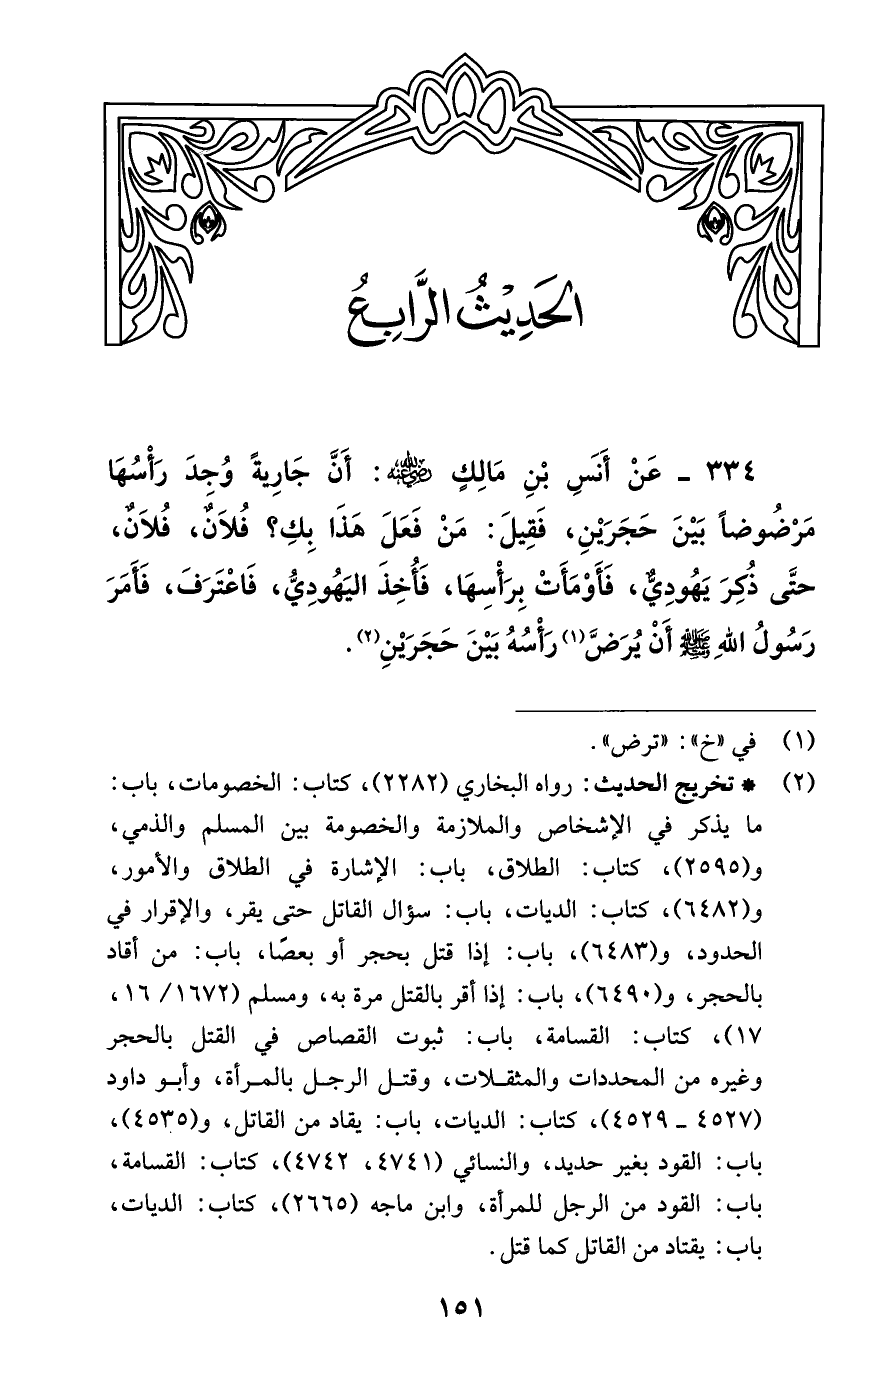 الحَدِيْثُ الرَّابِعُ
٣٣٤ ـ عَنْ أَنَسِ بْنِ مَالِكٍ ﵁: أَنَّ جَارِيةً وُجِدَ رَأْسُهَا
مَرْضُوضاً بَيْنَ حَجَرَيْنِ، فَقِيلَ: مَنْ فَعَلَ هَذَا بِكِ؟ فُلاَنٌ، فُلاَنٌ،
حتَّى ذُكِرَ يَهُودِيٌّ، فَأَوْمَأَتْ بِرَأْسِهَا، فَأُخِذَ اليَهُودِيُّ، فَاعْتَرَفَ، فَأَمَرَ
رَسُولُ اللهِ ﷺ أَنْ يُرَضَّ(١) رَأْسُهُ بَيْنَ حَجَرَيْنِ(٢).
(١) في «خ»: «ترض».
(٢) * تخريج الحديث: رواه البخاري (٢٢٨٢)، كتاب: الخصومات، باب:
ما يذكر في الإشخاص والملازمة والخصومة بين المسلم والذمي،
و(٢٥٩٥)، كتاب: الطلاق، باب: الإشارة في الطلاق والأمور،
و(٦٤٨٢)، كتاب: الديات، باب: سؤال القاتل حتى يقر، والإقرار في
الحدود، و(٦٤٨٣)، باب: إذا قتل بحجر أو بعصًا، باب: من أقاد
بالحجر، و(٦٤٩٠)، باب: إذا أقر بالقتل مرة به، ومسلم (١٦٧٢/ ١٦،
١٧)، كتاب: القسامة، باب: ثبوت القصاص في القتل بالحجر
وغيره من المحددات والمثقـلات، وقتـل الرجـل بالمـرأة، وأبـو داود
(٤٥٢٧ ـ ٤٥٢٩)، كتاب: الديات، باب: يقاد من القاتل، و(٤٥٣٥)،
باب: القود بغير حديد، والنسائي (٤٧٤١، ٤٧٤٢)، كتاب: القسامة،
باب: القود من الرجل للمرأة، وابن ماجه (٢٦٦٥)، كتاب: الديات،
باب: يقتاد من القاتل كما قتل.
١٥١